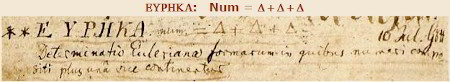 ΕΥΡΗΚΑ: Num = Δ+Δ+Δ
** ΕΥΡΗΚΑ. num. = Δ + Δ + Δ. 10 Jul. Gött
Determinatio Euleriana formarum in quibus numeri compo
siti plus una vice continentur